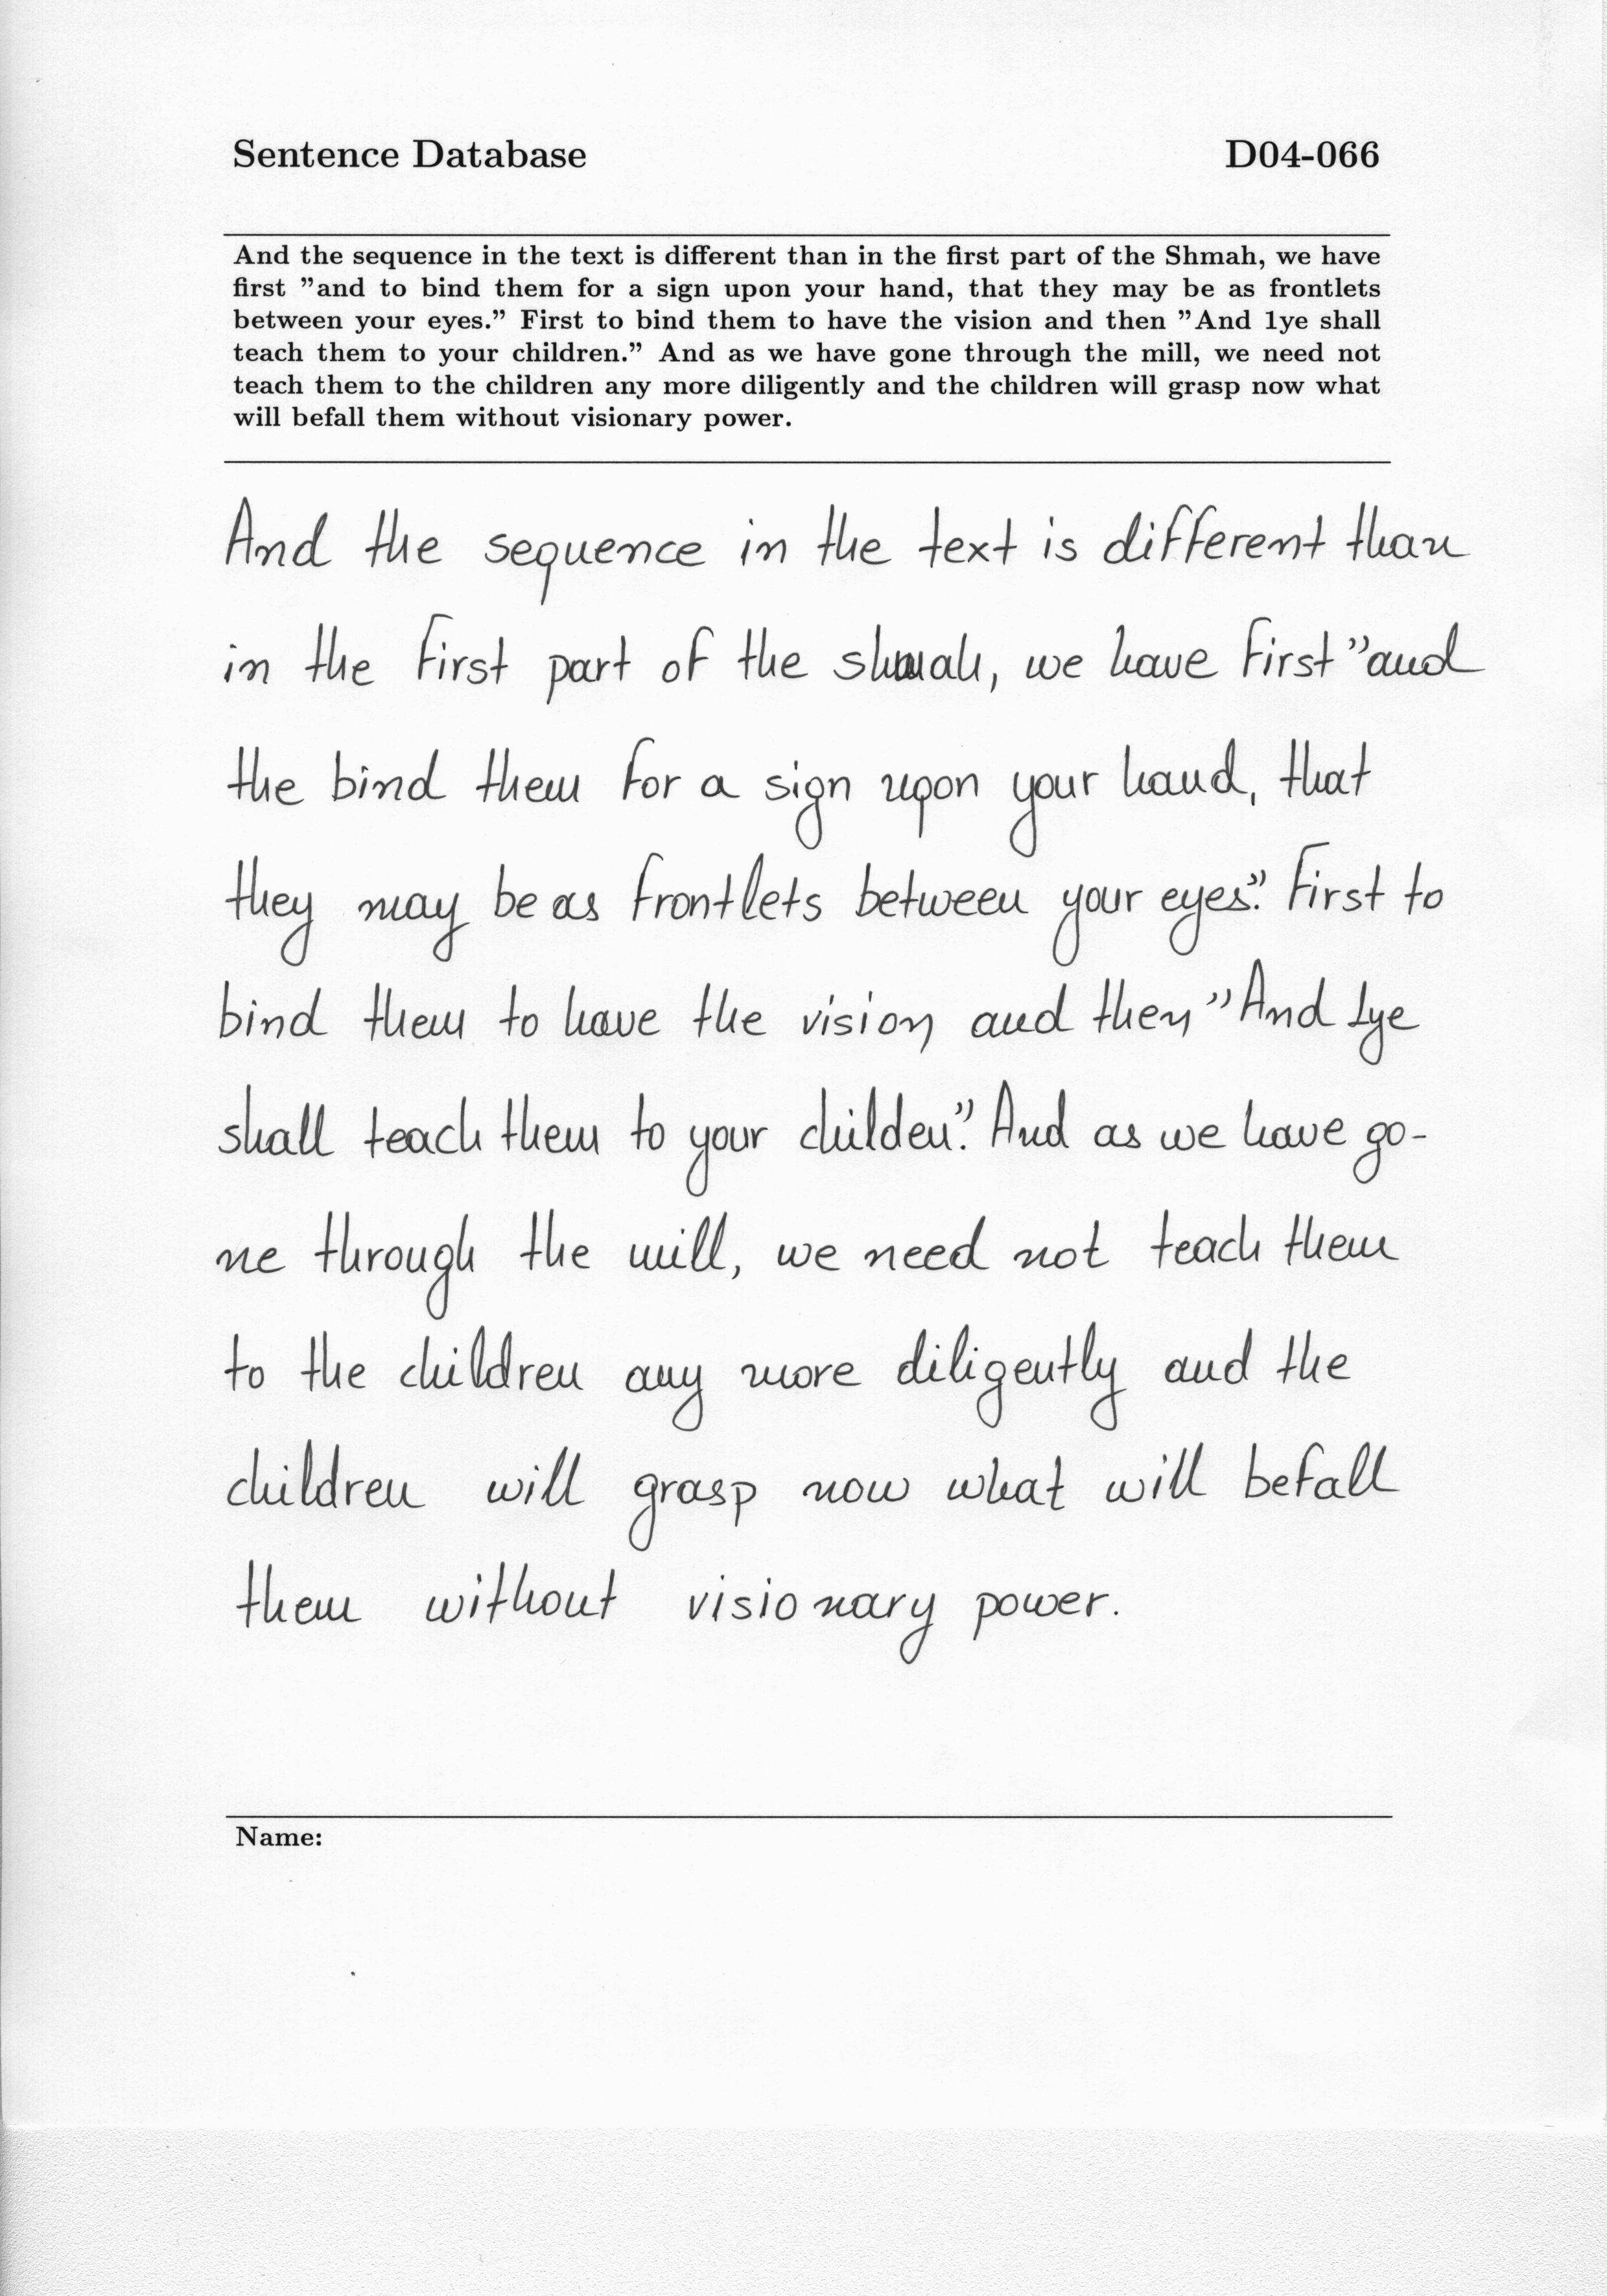 Sentence Database D04-066
And the sequence in the text is different than in the first part of the Shmah, we have
first "and to bind them for a sign upon your hand, that they may be as frontlets
between your eyes." First to bind them to have the vision and then "And 1ye shall
teach them to your children." And as we have gone through the mill, we need not
teach them to the children any more diligently and the children will grasp now what
will befall them without visionary power.
And the sequence in the text is different than
in the first part of the shmah, we have first "and
the bind them for a sign upon your hand, that
they may be as frontlets between your eyes." First to
bind them to have the vision and then "And 1ye
shall teach them to your childen." And as we have go-
ne through the mill, we need not teach them
to the children any more diligently and the
children will grasp now what will befall
them without visionary power.
Name: